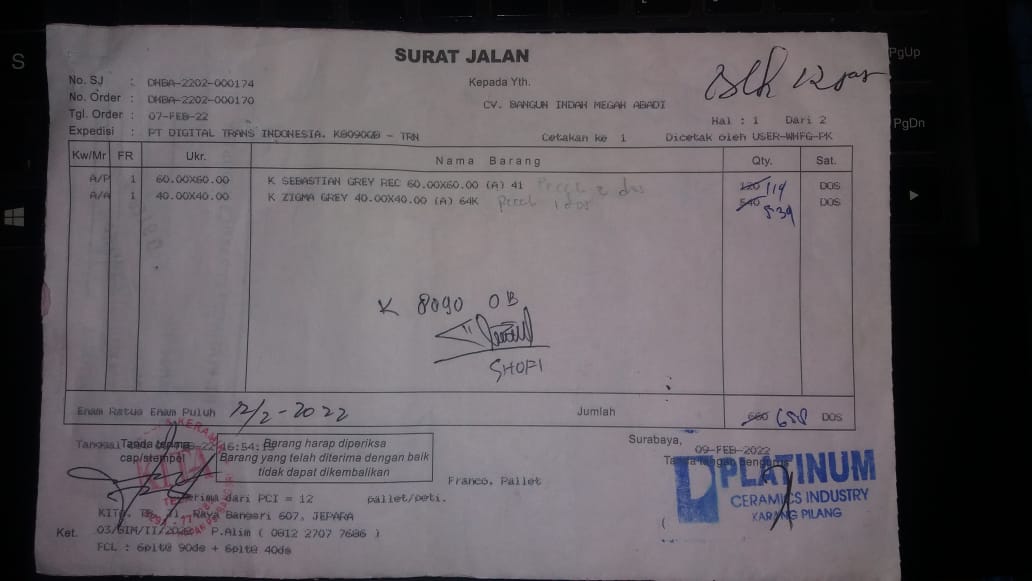 SURAT JALAN
No. SJ : DHBA-2202-000174
No. Order : DHBA-2202-000170
Tgl. Order : 07-FEB-22
Expedisi : PT DIGITAL TRANS INDONESIA. K8090GB - TRN
Kepada Yth.
CV. BANGUN INDAH MEGAH ABADI
12
Hal : 1 Dari 2
Cetakan ke 1 Dicetak oleh USER-WHFG-PK
Kw/Mr FR Ukr. Nama Barang Qty. Sat.
A/P 1 60.00X60.00 K SEBASTIAN GREY REC 60.00X60.00 (A) 41 Pecah 2 dos 120 119 DOS
A/A 1 40.00X40.00 K ZIGMA GREY 40.00X40.00 (A) 64K Pecah 1 dos 540 539 DOS
K 8090 OB
SHOFI
Enam Ratus Enam Puluh 12/2-2022 Jumlah 660 658 DOS
Tanggal 16:54:15
Tanda terima
cap/stempel
Barang harap diperiksa
Barang yang telah diterima dengan baik
tidak dapat dikembalikan
Surabaya,
09-FEB-2022
Franco, Pallet
PLATINUM
CERAMICS INDUSTRY
KARANG PILANG
Terima dari PCI = 12 pallet/peti.
Raya Bangsri 607, JEPARA
Ket. 03/SIM/II/2022 P.Alim ( 0812 2707 7686 )
FCL : 6plt@ 90ds + 6plt@ 40ds